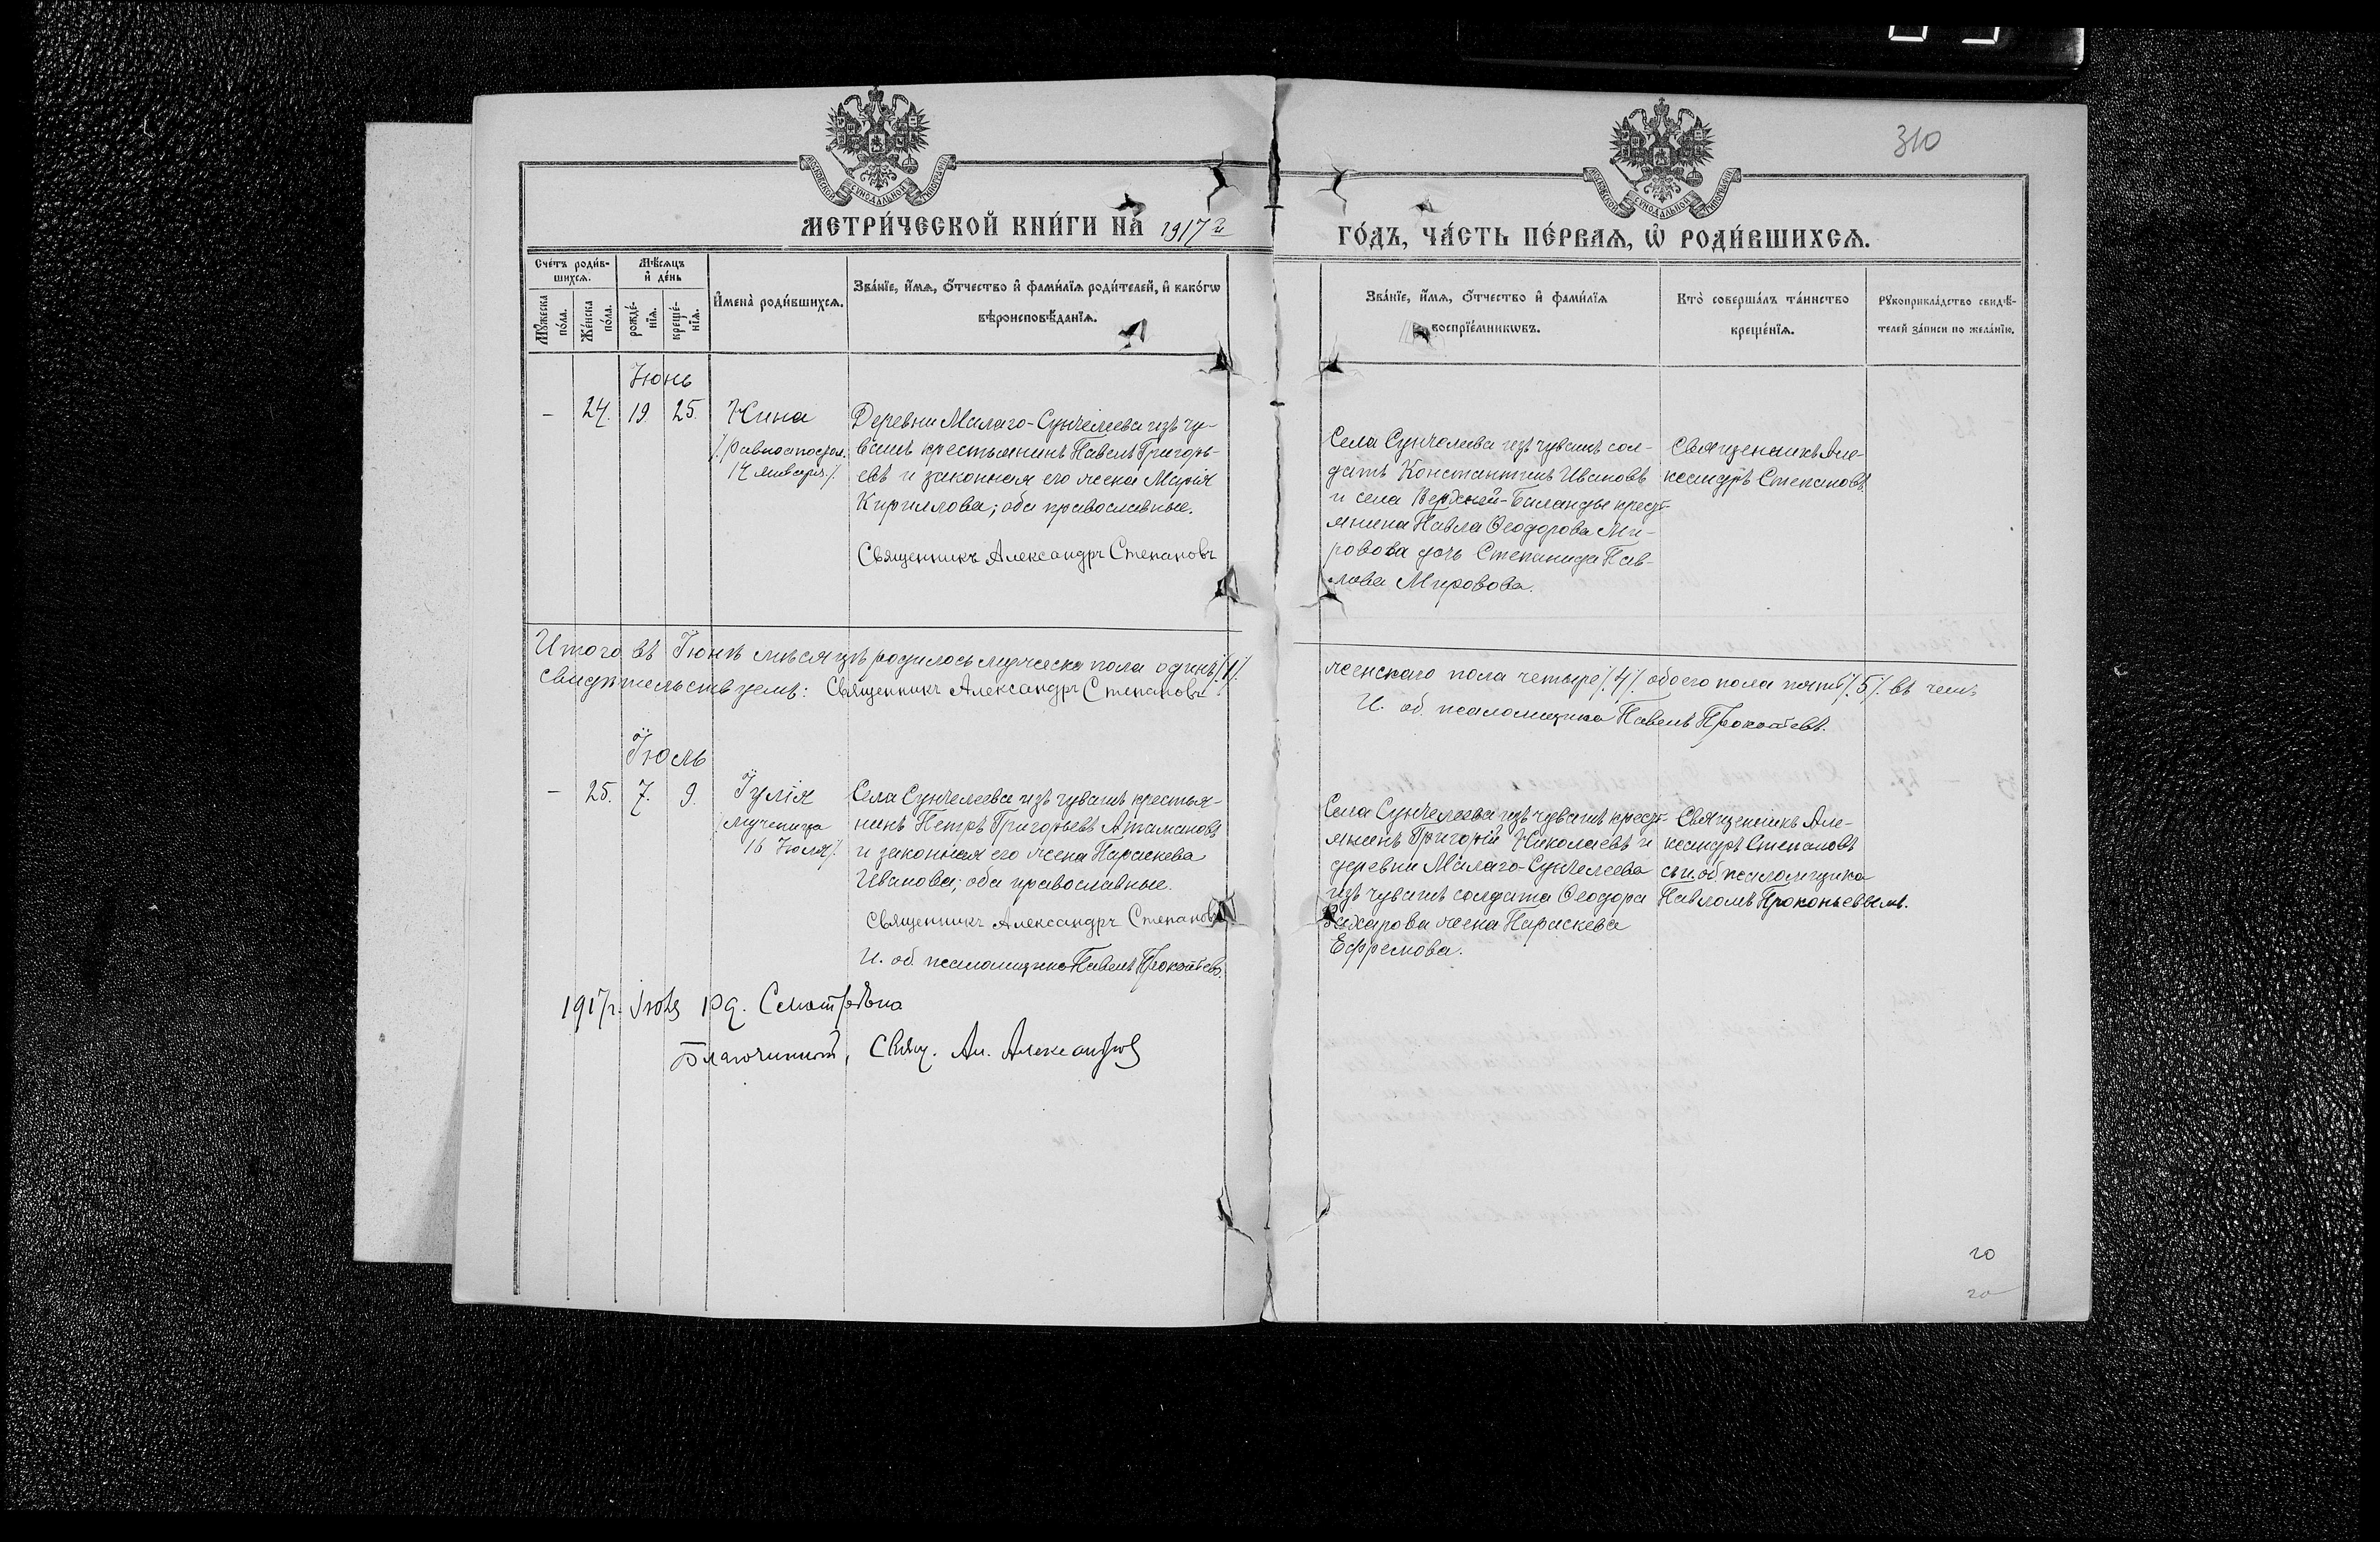 310
МЕТРИ́ЧЕСКОЙ КНИ́ГИ НА̀ 1917й
ГО́ДЪ, ЧА́СТЬ ПЕ́РВАѦ, Ѽ РОДИ́ВШИХСѦ.
Сче́тъ роди́в-
шихсѧ.
Мѣ́сѧцъ
и҆ де́нь
Мꙋ́жеска
по́ла.
Же́нска
по́ла.
рожде́-
нїѧ.
креще́-
нїѧ.
И҆мена̀ роди́вшихсѧ.
Зва́нїе, и҆́мѧ, ѻ҆́тчество и҆ фамѝлїѧ роди́телей, и҆ како́гѡ
вѣроисповѣ́данїѧ.
Зва́нїе, и҆́мѧ, ѻ҆́тчество и҆ фамѝлїѧ
воспрїе́мникѡвъ.
Кто̀ соверша́лъ та́инство
креще́нїѧ.
Рꙋкоприкла́дство свидѣ́-
телей за́писи по жела́нїю.
Іюнь
— 24. 19. 25. Нина
/. равноапостол.
14 января /.
Деревни Малаго-Сунчелеева изъ чу-
вашъ крестьянинъ Павелъ Григорь-
евъ и законная его жена Марія
Кириллова; оба православные.
Священникъ Александръ Степановъ
Села Сунчелеева изъ чувашъ сол-
датъ Константинъ Ивановъ
и села Верхней-Баланды крест-
янина Павла Ѳеодорова Ми-
ровова дочь Степанида Пав-
лова Мировова.
Священникъ Але-
ксандръ Степановъ.
Итого въ Іюнѣ мѣсяцѣ родилось мужеска пола одинъ /.1/.
женскаго пола четыре /.4/. обоего пола пять /.5/. въ чемъ
свидѣтельствуемъ: Священникъ Александръ Степановъ
И. об. псаломщика Павелъ Прокопьевъ.
Іюль
— 25. 7. 9. Іулія
мученица
16 Іюля /.
Села Сунчелеева изъ чувашъ крестья-
нинъ Петръ Григорьевъ Атамановъ
и законная его жена Параскева
Иванова; оба православные.
Священникъ Александръ Степановъ
И. об. псаломщика Павелъ Прокопьевъ.
Села Сунчелеева изъ чувашъ крест-
янинъ Григорій Николаевъ и
деревни Малаго-Сунчелеева
изъ чувашъ солдата Ѳеодора
Захарова жена Параскева
Ефремова.
Священникъ Але-
ксандръ Степановъ
съ и. об. псаломщика
Павломъ Прокопьевымъ.
1917г. Іюля Смотрѣна
Благочинный, Свящ. Ал. Александров
20
20